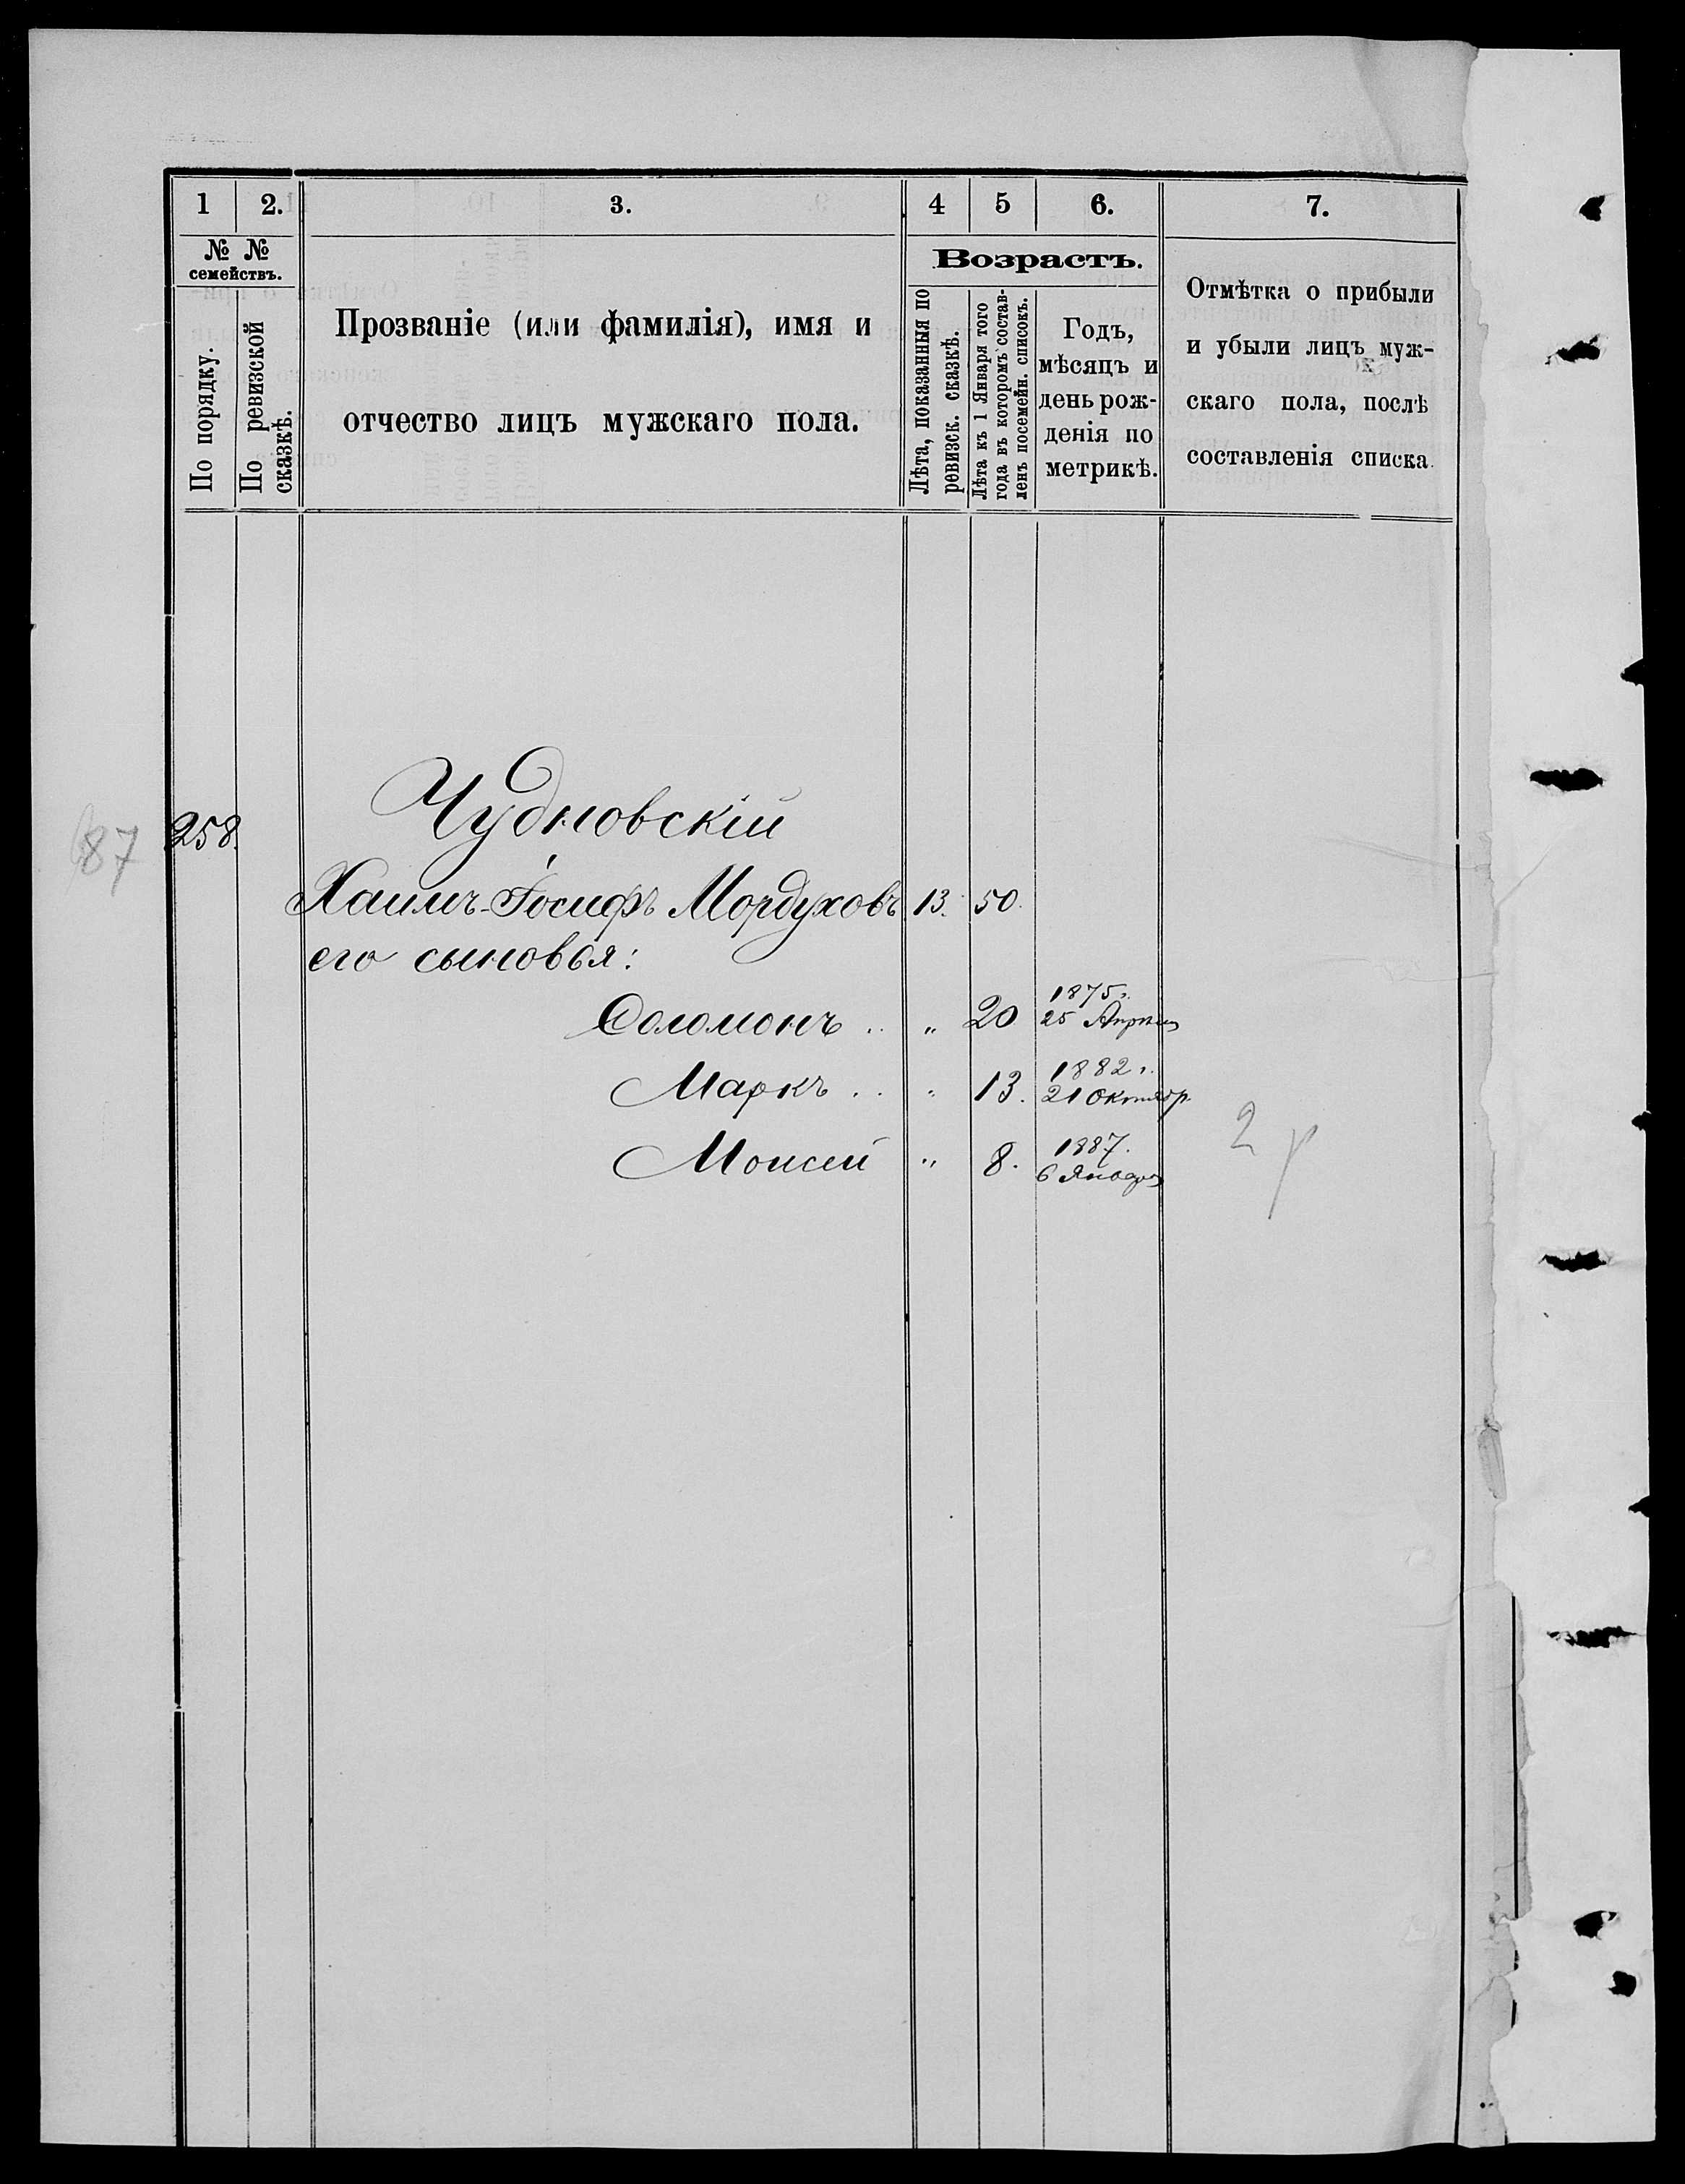 1 2. 3. 4 5 6. 7.
№ №
семействъ.
По порядку.
По ревизской
сказкѣ.
Прозваніе (или фамилія), имя и
отчество лицъ мужскаго пола.
Возрастъ.
Лѣта, показанныя по
ревизск. сказкѣ.
Лѣта къ 1 Января того
года въ которомъ состав-
ленъ посемейн. списокъ.
Годъ,
мѣсяцъ и
день рож-
денія по
метрикѣ.
Отмѣтка о прибыли
и убыли лицъ муж-
скаго пола, послѣ
составленія списка.
87 258. Чудновскій
Хаимъ-Іосифъ Мордуховъ 13. 50.
его сыновья:
1875 г.
Соломонъ .. " 20 25 Апрѣля
1882 г.
Маркъ .. " 13. 21 Октябр.
1887.
Моисей " 8. 6 Января
2 р